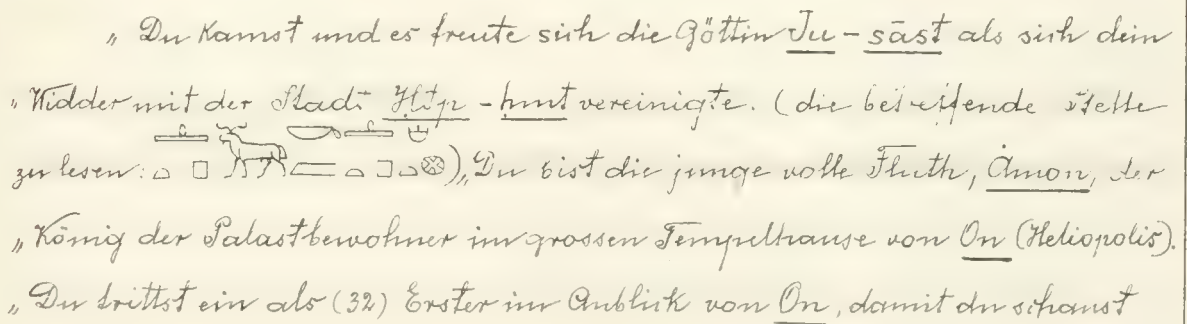 „Du kamst und es freute sich die Göttin Ju-sāst als sich dein
„Widder mit der Stadt Ḥtp-ḥmt vereinigte. (die betreffende Stelle
zu lesen: ), „Du bist die junge volle Fluth, Ȧmon, der
„König der Palastbewohner im grossen Tempelhause von On (Heliopolis).
„Du trittst ein als (32) Erster im Anblick von On, damit du schaust